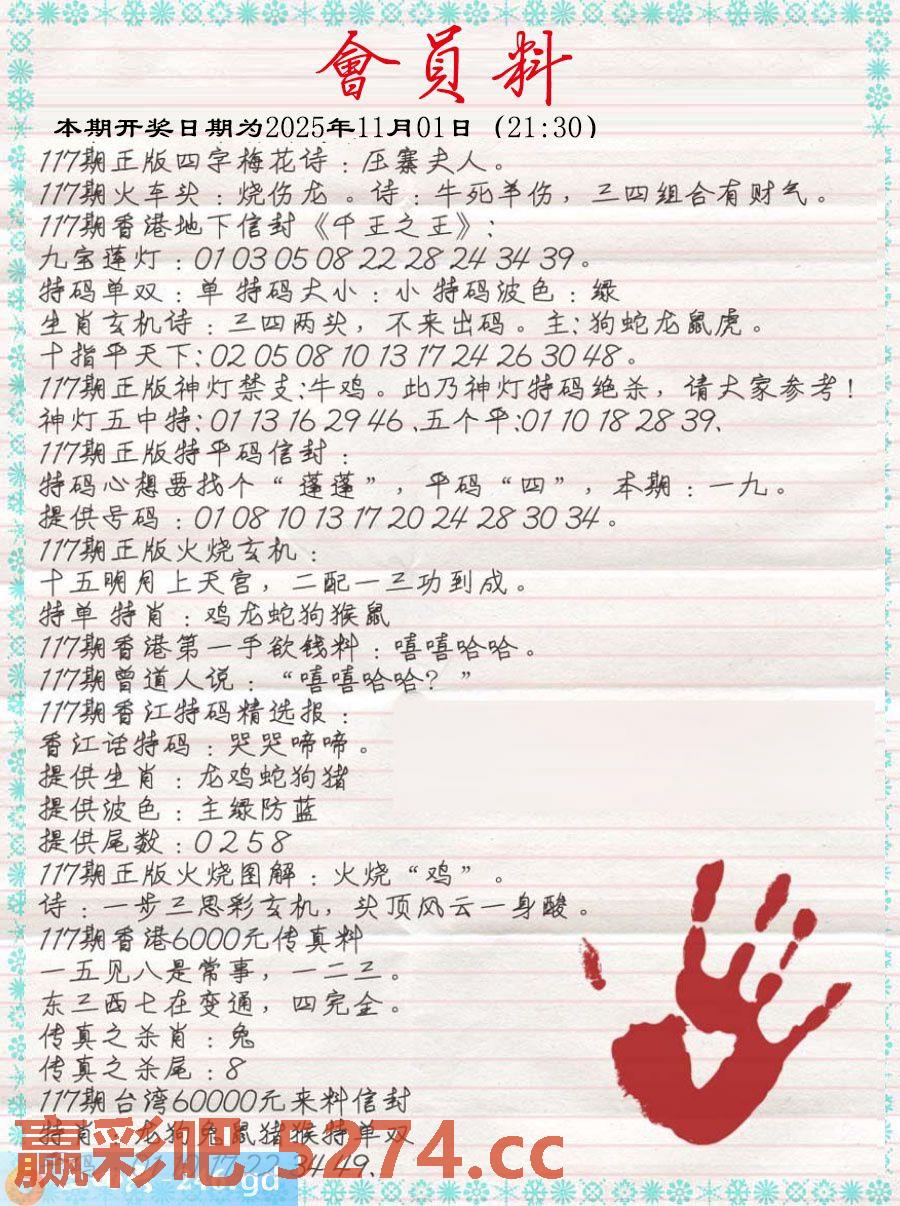 會員料
本期开奖日期为2025年11月01日（21:30）
117期正版四字梅花诗：压寨夫人。
117期火车头：烧伤龙 。诗：牛死羊伤，三四组合有财气。
117期香港地下信封《千王之王》：
九宝莲灯：01 03 05 08 22 28 24 34 39。
特码单双：单 特码大小：小 特码波色：绿
生肖玄机诗：三四两头，不来出码。主：狗蛇龙鼠虎。
十指平天下：02 05 08 10 13 17 24 26 30 48。
117期正版神灯禁支：牛鸡。此乃神灯特码绝杀，请大家参考！
神灯五中特：01 13 16 29 46 .五个平：01 10 18 28 39.
117期正版特平码信封：
特码心想要找个“ 蓬蓬”，平码“四”，本期：一九。
提供号码：01 08 10 13 17 20 24 28 30 34。
117期正版火烧玄机：
十五明月上天宫，二配一三功到成。
特单 特肖：鸡龙蛇狗猴鼠
117期香港第一手欲钱料：嘻嘻哈哈。
117期曾道人说：“嘻嘻哈哈？”
117期香江特码精选报：
香江话特码：哭哭啼啼。
提供生肖：龙鸡蛇狗猪
提供波色：主绿防蓝
提供尾数：0 2 5 8
117期正版火烧图解：火烧“鸡”。
诗：一步三思彩玄机，头顶风云一身酸。
117期香港6000元传真料
一五见八是常事，一二三。
东三西七在变通，四完金。
传真之杀肖：兔
传真之杀尾：8
117期台湾60000元来料信封
特肖：龙狗兔鼠猪猴特单双
赢彩吧.5274.cc
01 10 17 22 34 49.